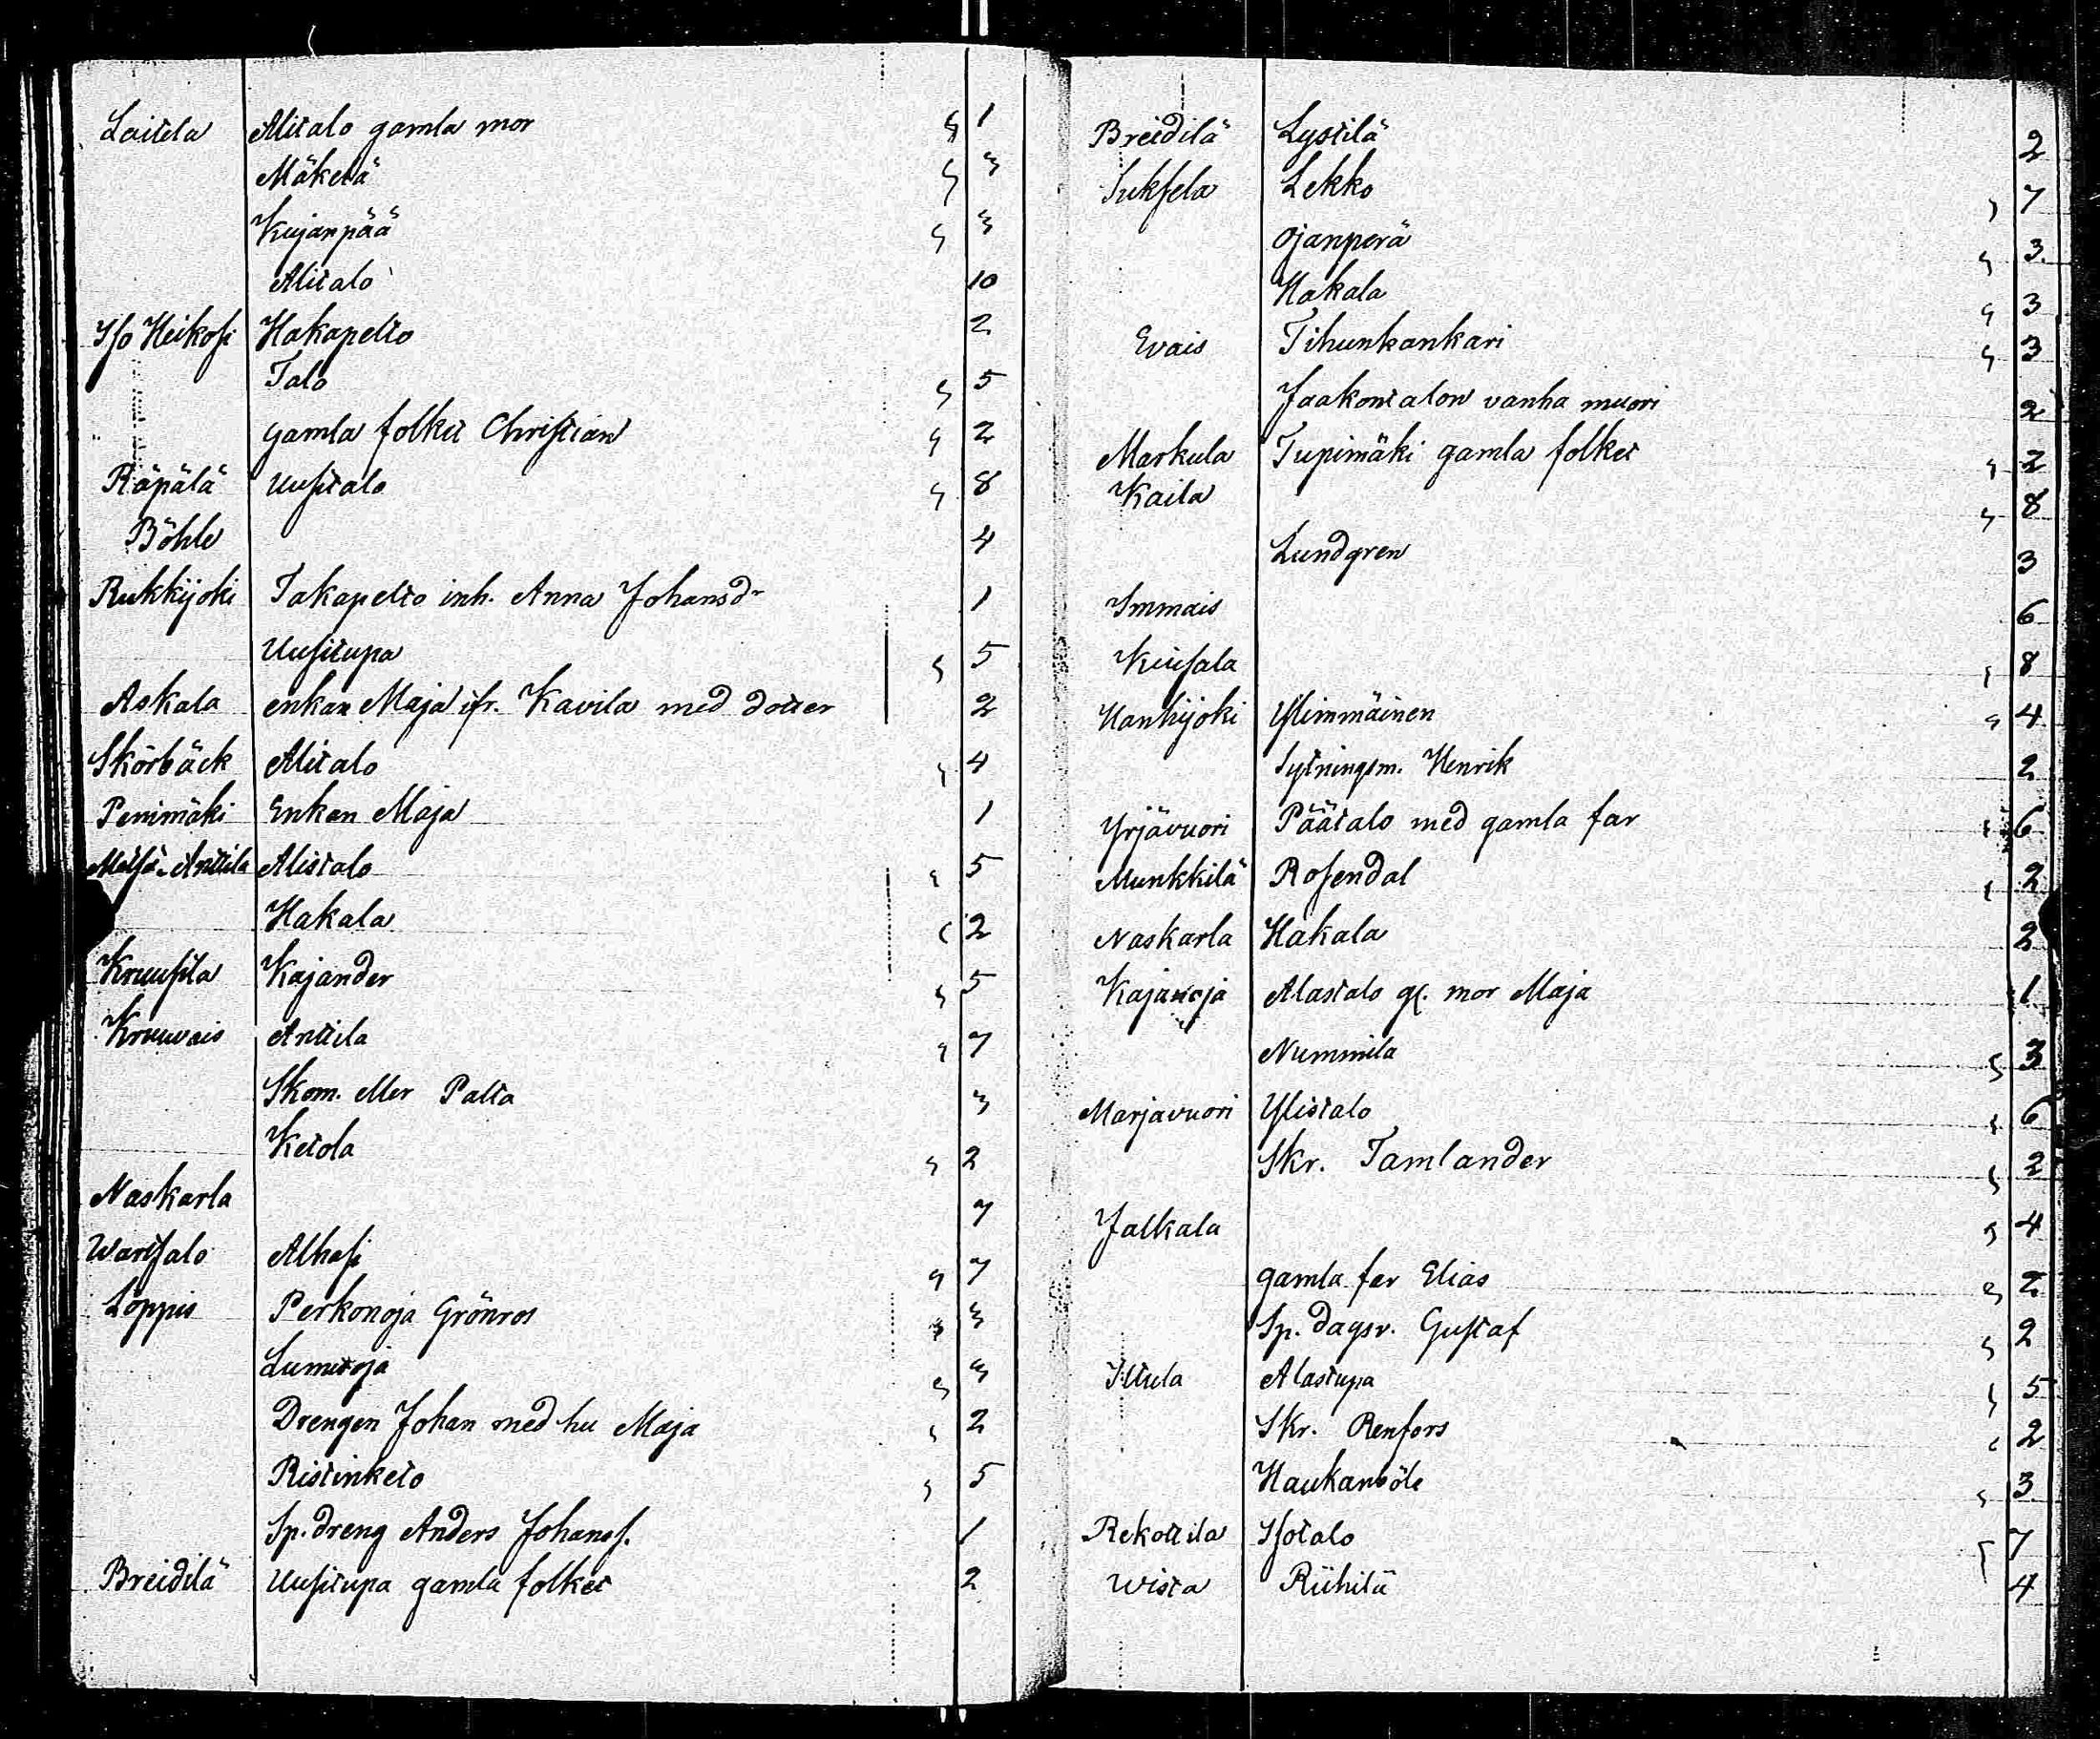 Laitela Alitalo gamla mor 1
Mäkelä 3
Kujanpää 3
Alitalo 10
Iso Heikosi Hakapelto 2
Talo 5
gamla folket Christian 2
Räpälä Uusitalo 8
Böhle 4
Rukkijoki Takapelto inh. Anna Johansdr 1
Uusitupa 5
Askala enkan Maja ifr. Kavila med dotter 2
Skörbäck Alitalo 4
Penimäki Enkan Maja 1
Metsä-Anttila Alistalo 5
Hakala 2
Kruusila Kajander 5
Kruuvais Anttila 7
Skom. eller Patta 3
Ketola 2
Naskarla 7
Wartsalo Alhasi 7
Löppis Perkonoja Grönros 3
Lumitoja 3
Drengen Johan med hu Maja 2
Ristinketo 5
Sp. dreng Anders Johanss. 1
Breidilä Uusitupa gamla folket 2
Breidilä Lystilä 2
Suksela Lekko 7
Ojanperä 3
Hakala 3
Evais Tihunkankari 3
Jaakontalon vanha muori 2
Markula Tupimäki gamla folket 2
Kaila 8
Lundgren 3
Immais 6
Kuusala 8
Hanhijoki Ylimmäinen 4
Sytningsm. Henrik 2
Yrjävuori Päätalo med gamla far 6
Munkkilä Rosendal 2
Naskarla Hakala 2
Kajanoja Alastalo gl. mor Maja 1
Nummila 3
Marjavuori Ylistalo 6
Skr. Tamlander 2
Jalkala 4
gamla far Elias 2
Sp. dagsv. Gustaf 2
Ittula Alastupa 5
Skr. Renfors 2
Haukansöle 3
Rekottila Isotalo 7
Wista Riihilä 4